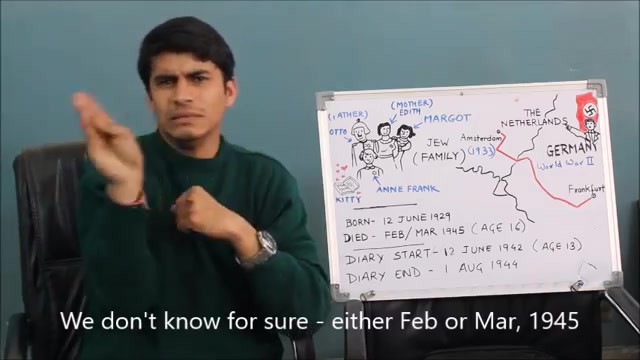 (FATHER)
OTTO
(MOTHER)
EDITH
MARGOT
ANNE FRANK
KITTY
JEW
(FAMILY)
THE
NETHERLANDS
Amsterdam
(1933)
GERMANY
World War II
Frankfurt
BORN- 12 JUNE 1929
DIED - FEB/MAR 1945 (AGE 16)
DIARY START- 12 JUNE 1942 (AGE 13)
DIARY END - 1 AUG 1944
We don't know for sure - either Feb or Mar, 1945